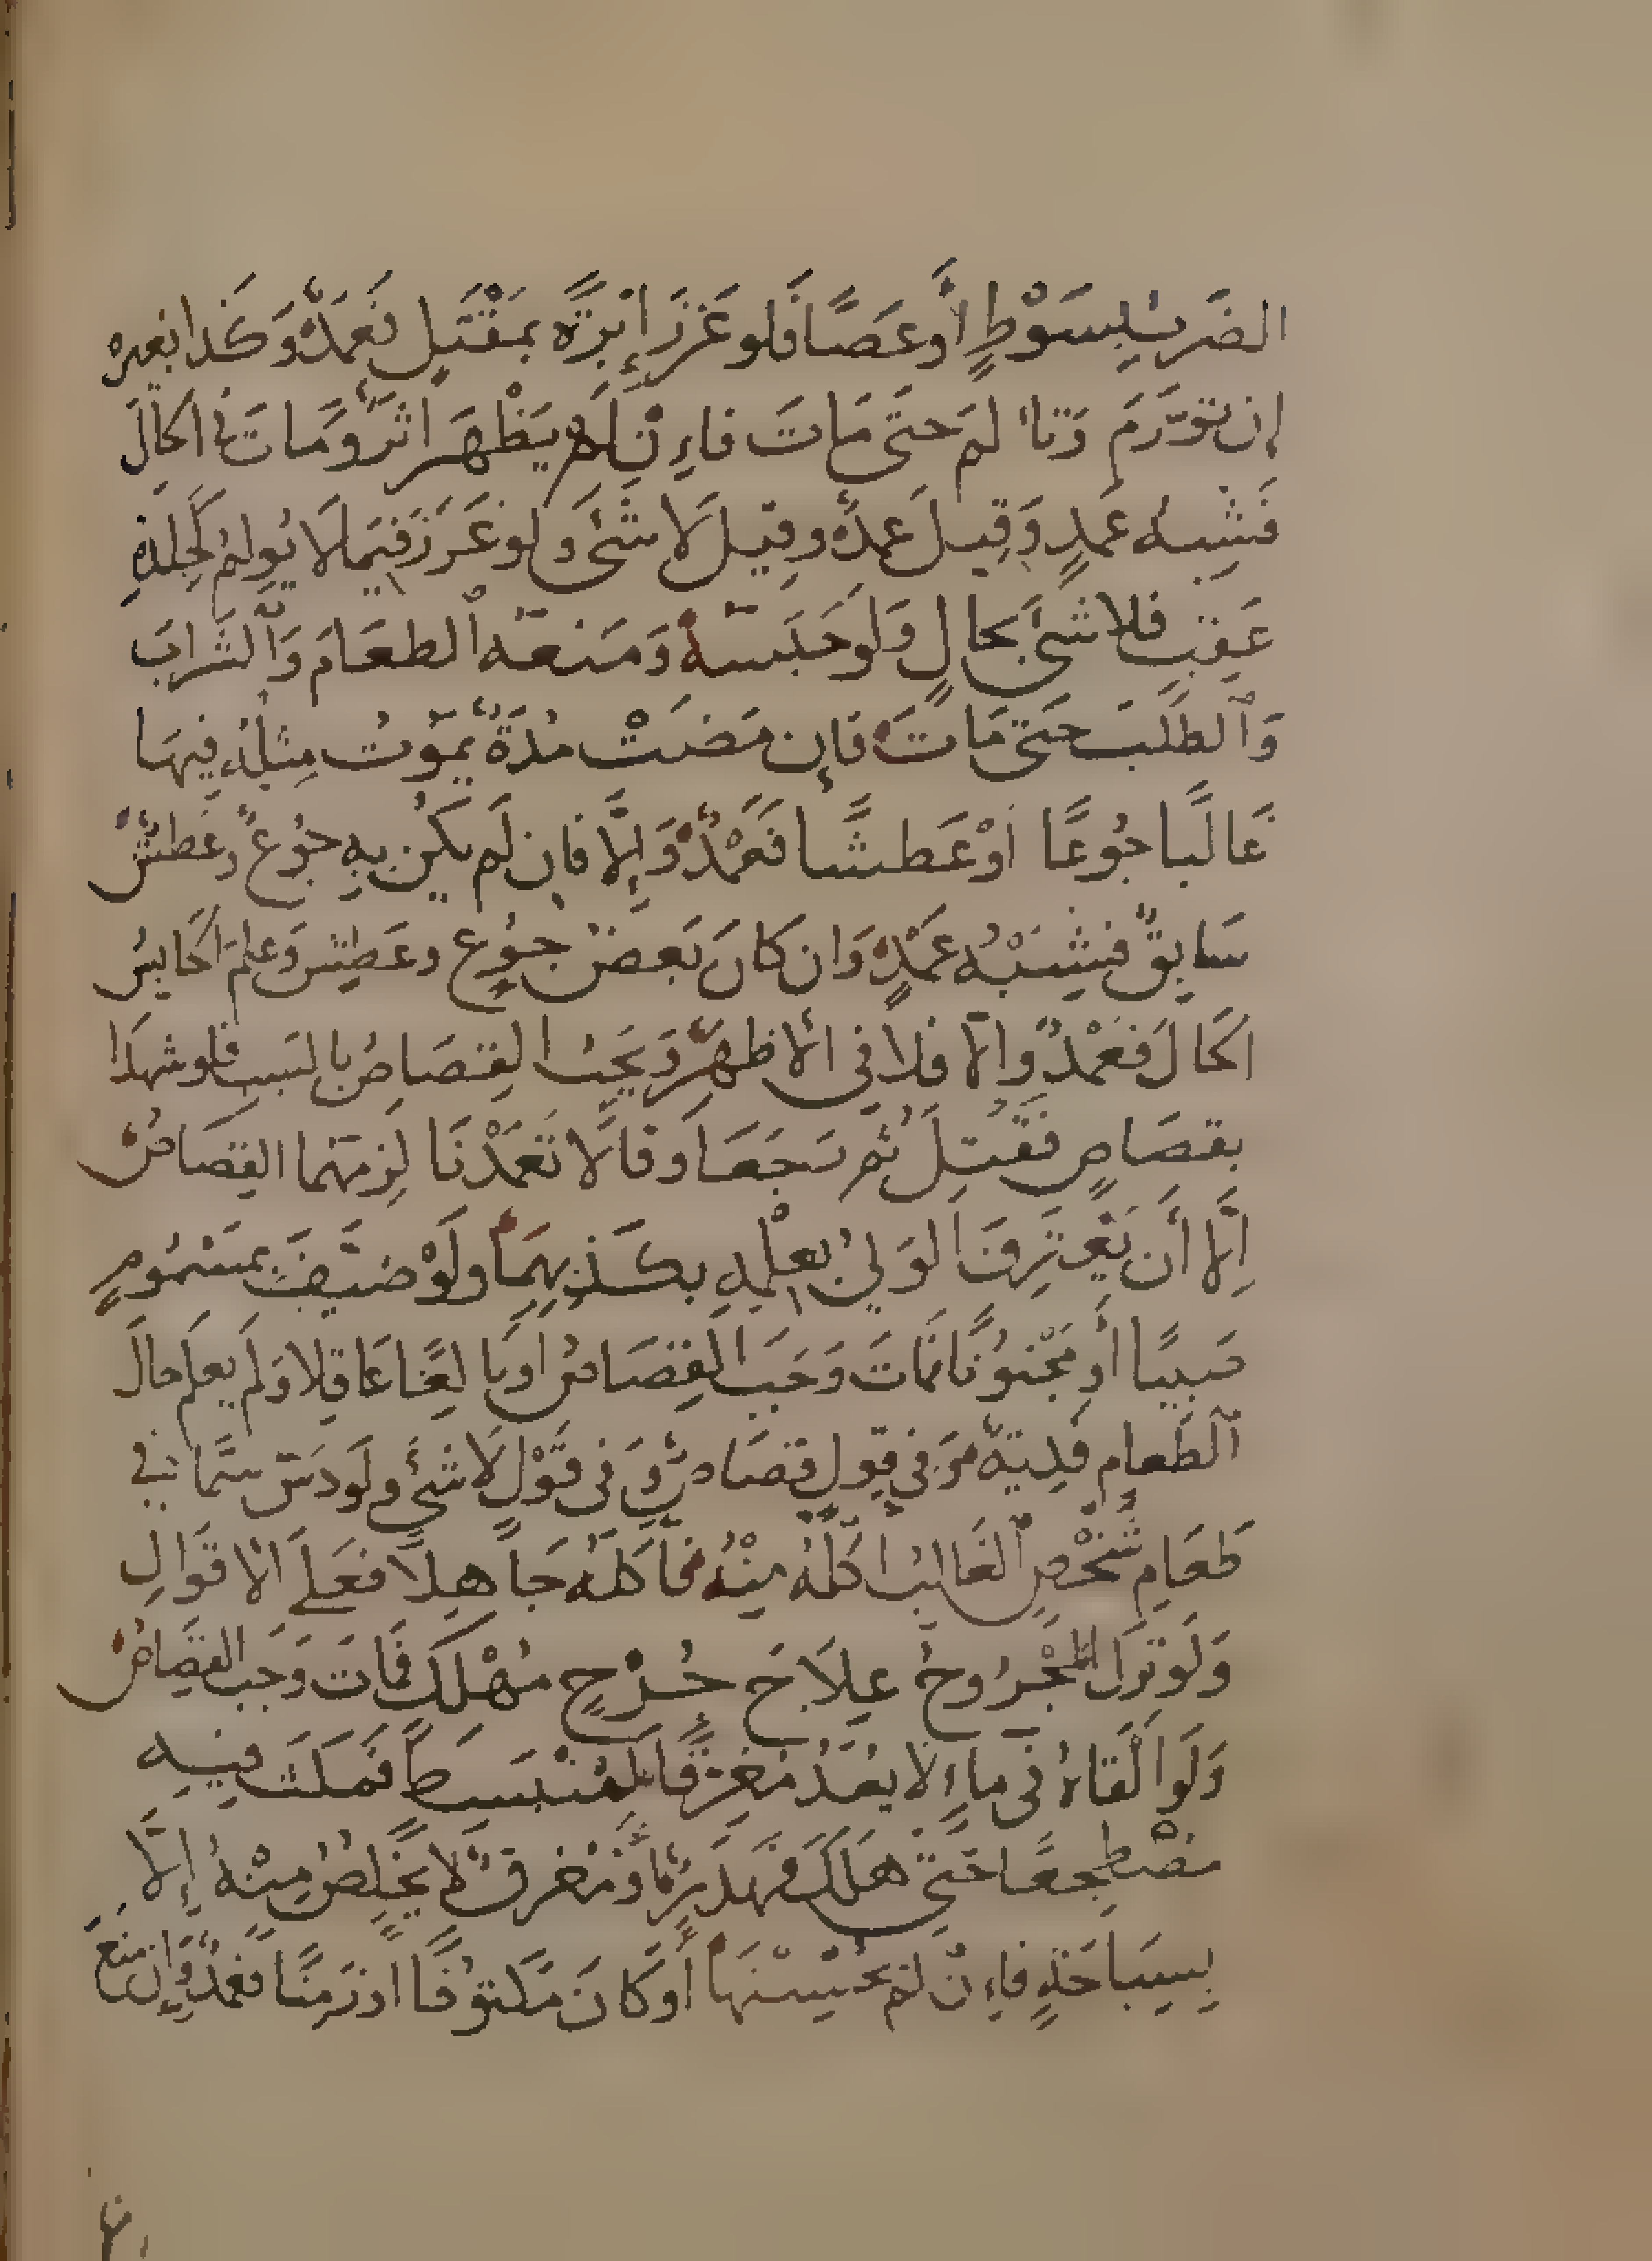 الضَربُ بِسَوْطٍ أَوعَصًا فَلو غَرَزَ إِبْرَةً بمَقْتَلٍ فَعَمدٌ وَكَذا بغيرِهْ
إن تَورَّمَ وَتأ لمَ حتَى مَاتَ فاءِنْ لَمْ يَظْهَر اثَرٌ وَمَاتَ في اكالَ
فَشِبهُ عَمدٍ وَقِيلَ عَمدٌ وقيل لَا شئَ وَلو غَرَزَ فيمَا لَا يُولمُ كَجِلدَةِ
عَقِبٍ فَلا شئَ بحالٍ وَلَو حَبَسَهُ وَمَنعَهُ ٱلطعَامَ وَٱلشَرابَ
وَٱلطَلَبَ حَتى مَاتَ فَإن مَضَتْ مُدَةٌ يمَوتُ مِثلُهُ فِيهَا
غَالبًا جُوعًا اَوْ عَطشًا فَعَمْدٌ وَإلَّا فان لَم يكُن بهِ جُوعٌ وعَطشٌ
سَابِقٌ فشِبْهُ عَمْدٍ وَان كانَ بَعضُ جُوعٍ وعَطِشٍ وَعلمَ اكَابِسُ
اكَالَ فَعَمْدٌ وَالّا فلا فى الأظهَرِ وَيَجبُ القِصَاصُ بالسَبب فلو شهدَا
بقصَاصٍ فقُتِلَ ثم رَجَعَا وَقالَا تَعَمَدْنَا لزمَهُما القِصَاصُ
إِلَّا أن يَعْترِفَ الوَليُ بعلْمِهِ بكَذِبهِمَا وَلَوْ ضيَّفَ بمَسْمُومٍ
صَبيًا أَو مَجْنُونًا فمَاتَ وَجَبَ القِصَاصُ اوبَا لغًا عَاقِلا وَلَم يعلَم حالَ
ٱلطَعامِ فَدِيَةٌ وَفي قولٍ قصَاصٌ وَفى قَوْلٍ لَا شئَ ولَو دَسَّ سَمًّا في
طَعَامِ شَخْصٍ ٱلغَالبُ اكلُهُ مِنْهُ فأكلَهُ جَاهِلًا فعَلَى الاقوَالِ
وَلَو تَرَكَ المَجْرُوحُ عِلَاجَ جُرْحٍ مُهْلِكٍ فمَاتَ وَجَبَ القِصَاصُ
وَلَو القَاهُ فى ماءٍ لَا يعَدُ مُغرِقًا كَمُنْبَسِطٍ فمَكَثَ فِيهِ
مضْطجعًا حَتى هَلَكَ فهَدَرٌ أَو مُغرِقٌ لَا يَخْلصُ مِنْهُ إلَّا
بسِبَاحَةٍ فاءِنْ لمْ يحُسِنْهَا أَوكَانَ مَكتُوفًا اوزَمِنًا فعَمدٌ وَإن منَعَ